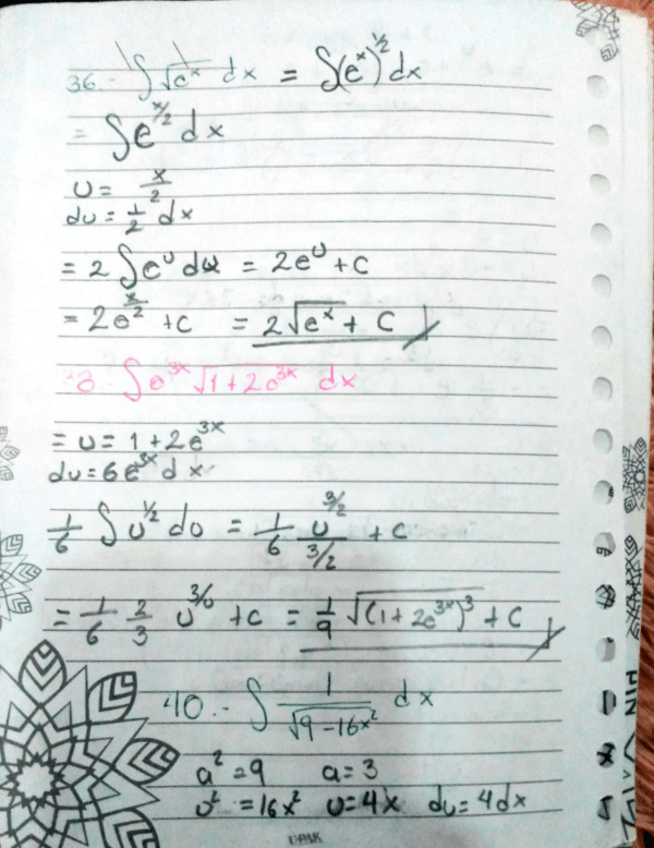 36.- ∫ √eˣ dx = ∫(eˣ)^½ dx
= ∫ e^(x/2) dx
u = x/2
du = 1/2 dx
= 2 ∫ eᵘ du = 2eᵘ + c
= 2e^(x/2) + c = 2√eˣ + C
∫ e³ˣ √1+2e³ˣ dx
= u = 1 + 2e³ˣ
du = 6e³ˣ dx
1/6 ∫ u^½ du = 1/6 u^(3/2)/(3/2) + c
= 1/6 2/3 u^(3/2) + c = 1/9 √(1+2e³ˣ)³ + C
40.- ∫ 1/√9-16x² dx
a² = 9 a = 3
u² = 16x² u = 4x du = 4dx